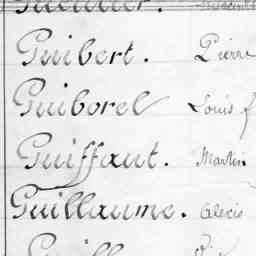 Guibert. Pierre
Guiborel Louis f
Guiffaut. Martin
Guillaume. Alexis